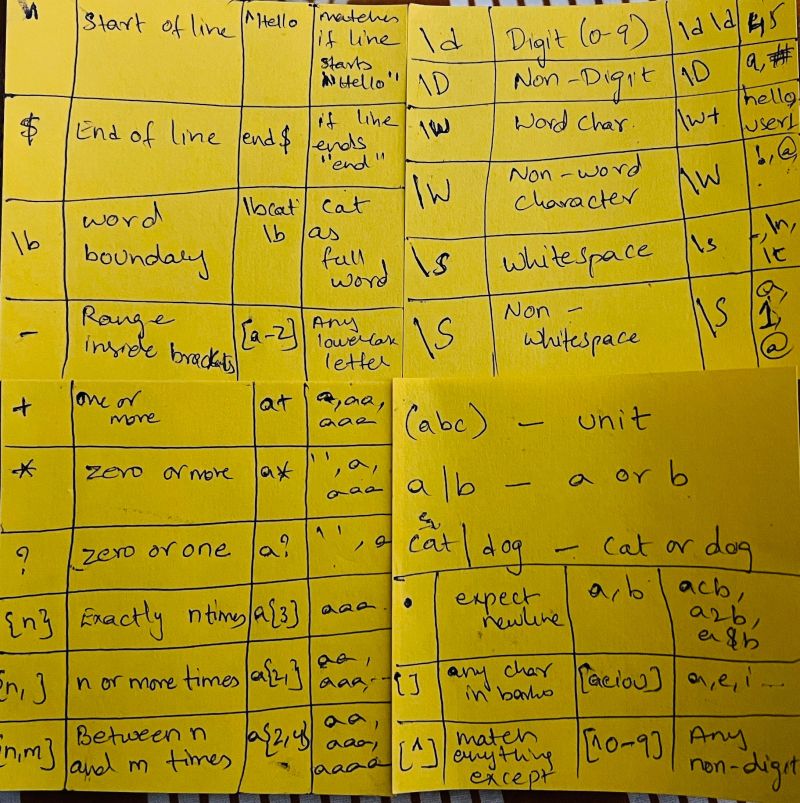 ^ Start of line ^Hello matches
if line
starts
"Hello"
$ End of line end$ if line
ends
"end"
\b word
boundary \bcat
\b cat
as
full
word
- Range
inside brackets [a-z] Any
lowercase
letter
\d Digit (0-9) \d\d 45
\D Non-Digit \D a, #
\w Word char. \w+ hello,
user1
\W Non-word
character \W !, @,
\s Whitespace \s \n,
\t
\S Non-
whitespace \S a,
1,
@
+ one or
more a+ a, aa,
aaa
* zero or more a* '', a,
aaa
? zero or one a? '', a
{n} Exactly n times a{3} aaa
{n, } n or more times a{2,} aa,
aaa, ..
{n,m} Between n
and m times a{2,4} aa,
aaa,
aaaa
(abc) - unit
a|b - a or b
cat|dog - cat or dog
. expect
newline a.b acb,
a2b,
a$b
[ ] any char
in [aeiou] a, e, i ...
[^] match
anything
except [^0-9] Any
non-digit